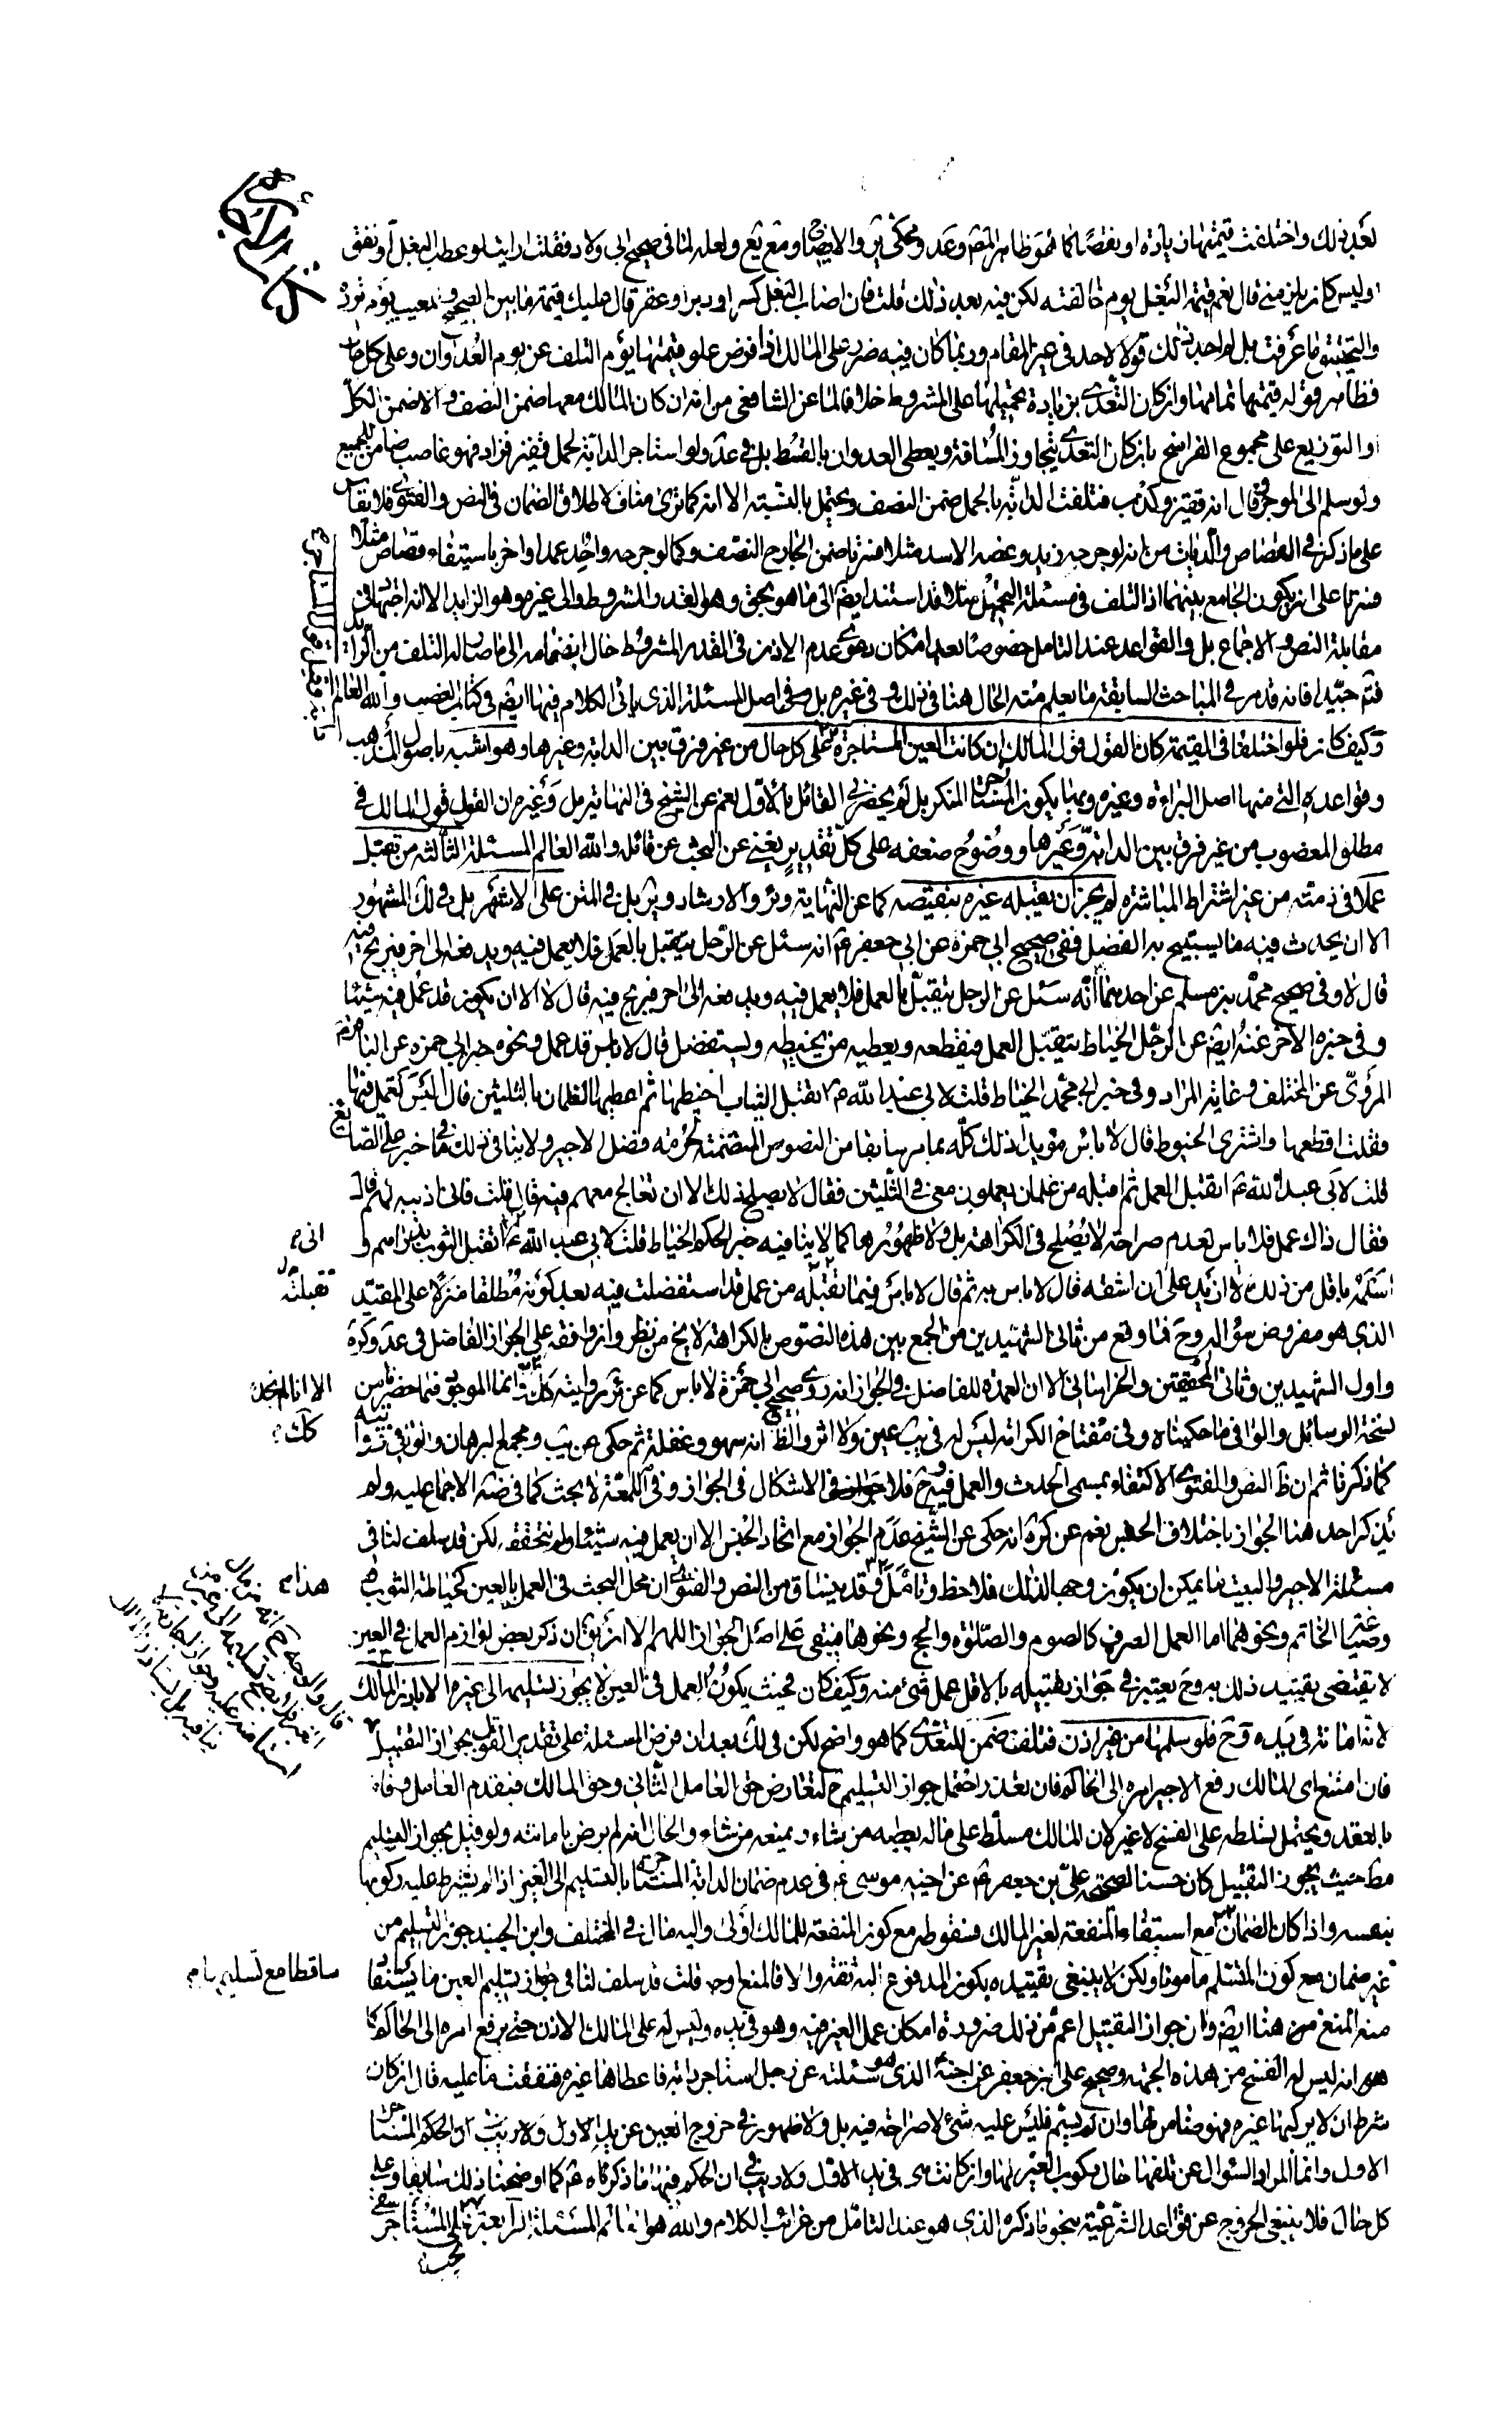 بعد ذلك واختلفت قيمتها زيادة او نقصا كما هو ظاهر المص وعد ومحكى ير والايضاح ومع ثع ولعله لما في صحيح ابي ولاد فقلت ارايت لو عطب البغل او نفق
اوليس كان يلزمني قال نعم قيمة البغل يوم خالفته لكن فيه بعد ذلك قلت فان اصاب البغل كسر او دبر او عقر قال عليك قيمة ما بين الصحة والمعيب يوم ترده
والتحقيق ما عرفت بل لم اجد بذلك قولا لاحد في غير المقام وربما كان فيه ضرر على المالك اذا فرض علو قيمتها يوم التلف عن يوم العدوان وعلى كل حال
فظاهر قوله قيمتها تمامها وان كان التعدي بزيادة تحميلها على المشروط خلافا لما عن الشافعي من انه ان كان المالك معها ضمن النصف والا ضمن الكل
او التوزيع على مجموع الفراسخ بان كان التعدي بتجاوز المسافة ويعطى العدوان بالقسط بل في عد ولو استاجر الدابة لحمل قفيز فزاد فهو غاصب ضامن للجميع
ولو سلم الى الموجر وقال انه قفيز وكذب فتلفت الدابة بالحمل ضمن النصف ويحتمل بالنسبة الا انه كما ترى مناف لاطلاق الضمان في النص والفتوى فلا يقاس
على ما ذكر في القصاص والديات من انه لو جرحه زيد وعضه الاسد مثلا فسرتا ضمن الجارح النصف وكما لو جرحه واحد عمدا واخر باستيفاء قصاص مثلا
فسرتا على ان يكون الجامع بينهما اذ التلف في مسئلة التحميل مثلا قد استند ايضا الى ما هو بحق وهو العقد والمشروط والى غيره وهو الزايد الا انه اجتهاد في
مقابلة النص والاجماع بل والقواعد عند التامل خصوصا بعد امكان دعوى عدم الاذن في القدر المشروط حال انضمامه الى ما صار له التلف من الزائد
فتم جيدا فانه قد مر في المباحث السابقة ما يعلم منه الحال هنا في ذلك وفي غيره بل وفي اصل المسئلة الذي ياتي الكلام فيها ايضا في كتاب الغصب والله العالم
وكيف كان فلو اختلفا في القيمة كان القول قول المالك ان كانت العين المستاجرة على كل حال من غير فرق بين الدابة وغيرها وهو اشبه باصول المذهب
وقواعده التي منها اصل البراءة وغيره وبها يكون المستاجر المنكر بل لم يحضرني القائل بالاول نعم عن الشيخ في النهاية بل وغيره ان القول قول المالك في
مطلق المغصوب من غير فرق بين الدابة وغيرها ووضوح ضعفه على كل تقدير يغني عن البحث عن قائله والله العالم المسئلة الثالثة من تقبل
عملا في ذمته من غير اشتراط المباشرة لم يجز ان يقبله غيره بنقيصة كما عن النهاية وئر والارشاد وير بل في المتن على الاشهر بل في لك المشهور
الا ان يحدث فيه ما يستبيح به الفضل ففي صحيح ابي حمزة عن ابي جعفر ع انه سئل عن الرجل يتقبل بالعمل فلا يعمل فيه ويدفعه الى اخر فيربح فيه
قال لا وفي صحيح محمد بن مسلم عن احدهما انه سئل عن الرجل يتقبل بالعمل فلا يعمل فيه ويدفعه الى اخر فيربح فيه قال لا الا ان يكون قد عمل فيه شيئا
وفي خبره الاخر عنه ايضا عن الرجل الخياط يتقبل العمل فيقطعه ويعطيه من يخيطه ويستفضل قال لا باس قد عمل ونحوه خبر ابي حمزة عن الباقر ع
المروي عن المختلف وغاية المراد وفي خبر ابي محمد الخياط قلت لابي عبد الله م اتقبل الثياب اخيطها ثم اعطيها الغلمان بالثلثين قال اليس تعمل فيها
فقلت اقطعها واشتري الخيوط قال لا باس مؤيدا ذلك كله بما مر سابقا من النصوص المتضمنة لحرمة فضل الاجير ولا ينافي ذلك ما في خبر على الصايغ
قلت لابي عبد الله ع اتقبل العمل ثم اقبله من غلمان يعملون معي في الثلثين فقال لا يصلح ذلك الا ان تعالج معهم فيه قال قلت فاني اذيبه لهم قال
فقال ذاك عمل فلا باس لعدم صراحة لا يصلح في الكراهة بل ولا ظهورها كما لا ينافيه خبر الحكم الخياط قلت لابي عبد الله ع اتقبل الثوب بدراهم و
اسلمه باقل من ذلك لا ازيد على ان اشقه قال لا باس به ثم قال لا باس فيما تقبلته من عمل قد استفضلت فيه بعد كونه مطلقا منزلا على المقيد
الذي هو مفروض سؤاله وح فما وقع من ثاني الشهيدين من الجمع بين هذه النصوص بالكراهة لا يخ من نظر وان وافقه على الجواز الفاضل في عد وكرة
واول الشهيدين وثاني المحققين والخراساني الا ان العمدة للفاضل في الجواز انه روى صحيح ابي حمزة لا باس كما عن ئر روايته كك وانما الموجود فيما حضرنا من
نسخة الوسائل والوافي ما حكيناه وفي مفتاح الكرامة ليس له في يب عين ولا اثر والظ انه سهو وغفلة ثم حكى عن يب ومجمع البرهان والوافي روايته
كما ذكرنا ثم ان ظ النص والفتوى الاكتفاء بمسمى الحدث والعمل فيه وح فلا في الاشكال في الجواز وفي اللمعة لا بحث كما في ضة الاجماع عليه ولم
يذكر احد هنا الجواز باختلاف الجنس نعم عن كرة انه حكى عن الشيخ عدم الجواز مع اتحاد الجنس الا ان يعمل فيه شيئا ولم نتحققه لكن قد سلف لنا في
مسئلة الاجير والبيت ما يمكن ان يكون وجها لذلك فلاحظ وتامل وقد ينساق من النص والفتوى ان محل البحث في العمل بالعين كخياطة الثوب
وصياغة الخاتم ونحوهما اما العمل الصرف كالصوم والصلوة والحج ونحوها فيبقى على اصل الجواز اللهم الا ان يق ان ذكر بعض لوازم العمل في العين
لا يقتضى تقييد ذلك به وح يعتبر في جواز تقبيله بالاقل عمل شئ منه وكيف كان فحيث يكون العمل في العين لا يجوز تسليمها الى غيره الا باذن المالك
لانها امانة في يده وح فلو سلمها من غير اذن فتلفت ضمن للتعدي كما هو واضح لكن في لك بعد ان فرض المسئلة على تقدير القول بجواز التقبيل
فان امتنع اي المالك رفع الاجير امره الى الحاكم فان تعذر احتمل جواز التسليم ح لتعارض حق العامل الثاني وحق المالك فيقدم العامل وفاء
بالعقد ويحتمل تسلطه على الفسخ لا غير لان المالك مسلط على ماله يعطيه من يشاء ويمنعه من يشاء والحال انه لم يرض بامانته ولو قيل بجواز التسليم
مط حيث يجوز التقبيل كان حسنا لصحيحة على بن جعفر ع عن اخيه موسى ع في عدم ضمان الدابة المستاجرة بالتسليم الى الغير اذا لم يشترط عليه ركوبها
بنفسه واذا كان الضمان مع استيفاء المنفعة لغير المالك فسقوطه مع كون المنفعة للمالك اولى واليه مال في المختلف وابن الجنيد جوز التسليم من
غير ضمان مع كون المتسلم مامونا ولكن لا ينبغي تقييده بكون المدفوع اليه ثقة والا فالمنع اوجه قلت قد سلف لنا في جواز تسليم العين ما يستفاد
منه المنع من هنا ايضا وان جواز التقبيل اعم من ذلك ضرورة امكان عمل الغير فيه وهو في يده وليس له على المالك الاذن حتى يرفع امره الى الحاكم كما
هو انه ليس له الفسخ من هذه الجهة وصحيح على بن جعفر عن اخيه الذي هو سئلته عن رجل استاجر دابة فاعطاها غيره فنفقت ما عليه قال ان كان
شرط ان لا يركبها غيره فهو ضامن لها وان لم يسم فليس عليه شئ لا صراحة فيه بل ولا ظهور في خروج العين عن يد الاول ولا ريب ان الحكم المستاجر
الاول وانما المراد السؤال عن تلفها حال ركوب الغير لها وان كانت هي في يد الاول ولا ريب في ان الحكم فيها ما ذكره ع كما اوضحنا ذلك سابقا وعلى
كل حال فلا ينبغي الخروج عن قواعد الشرعية بنحو ما ذكره الذي هو عند التامل من غرائب الكلام والله هو العالم المسئلة الرابعة على المستاجر
يجب
انى م
تقبلته
الا انا لم نجده
كك
هذا م
ساقطا مع تسليم يا م